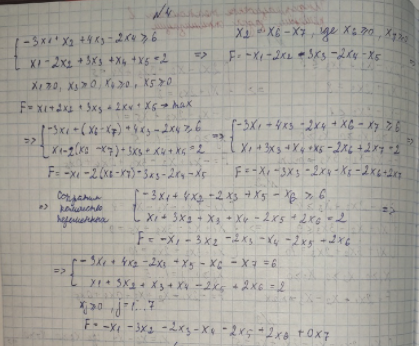 №4
-3x1 + x2 + 4x3 - 2x4 ⩾ 6
x1 - 2x2 + 3x3 + x4 + x5 = 2
x1⩾0, x3⩾0, x4⩾0, x5⩾0
F = x1 + 2x2 + 3x3 + 2x4 + x5 → max
x2 = x6 - x7, где x6⩾0, x7⩾0
⇒ F = -x1 - 2x2 - 3x3 - 2x4 - x5 ⇒
⇒ -3x1 + (x6 - x7) + 4x3 - 2x4 ⩾ 6 ⇒
x1 - 2(x6 - x7) + 3x3 + x4 + x5 = 2
F = -x1 - 2(x6 - x7) - 3x3 - 2x4 - x5
-3x1 + 4x3 - 2x4 + x6 - x7 ⩾ 6 ⇒
x1 + 3x3 + x4 + x5 - 2x6 + 2x7 = 2
F = -x1 - 3x3 - 2x4 - x5 - 2x6 + 2x7
⇒ -3x1 + 4x2 - 2x3 + x5 - x6 ⩾ 6 ⇒
x1 + 3x2 + x3 + x4 - 2x5 + 2x6 = 2
F = -x1 - 3x2 - 2x3 - x4 - 2x5 + 2x6
⇒ -3x1 + 4x2 - 2x3 + x5 - x6 - x7 = 6
x1 + 3x2 + x3 + x4 - 2x5 + 2x6 = 2
xj⩾0, j=1...7
F = -x1 - 3x2 - 2x3 - x4 - 2x5 + 2x6 + 0x7